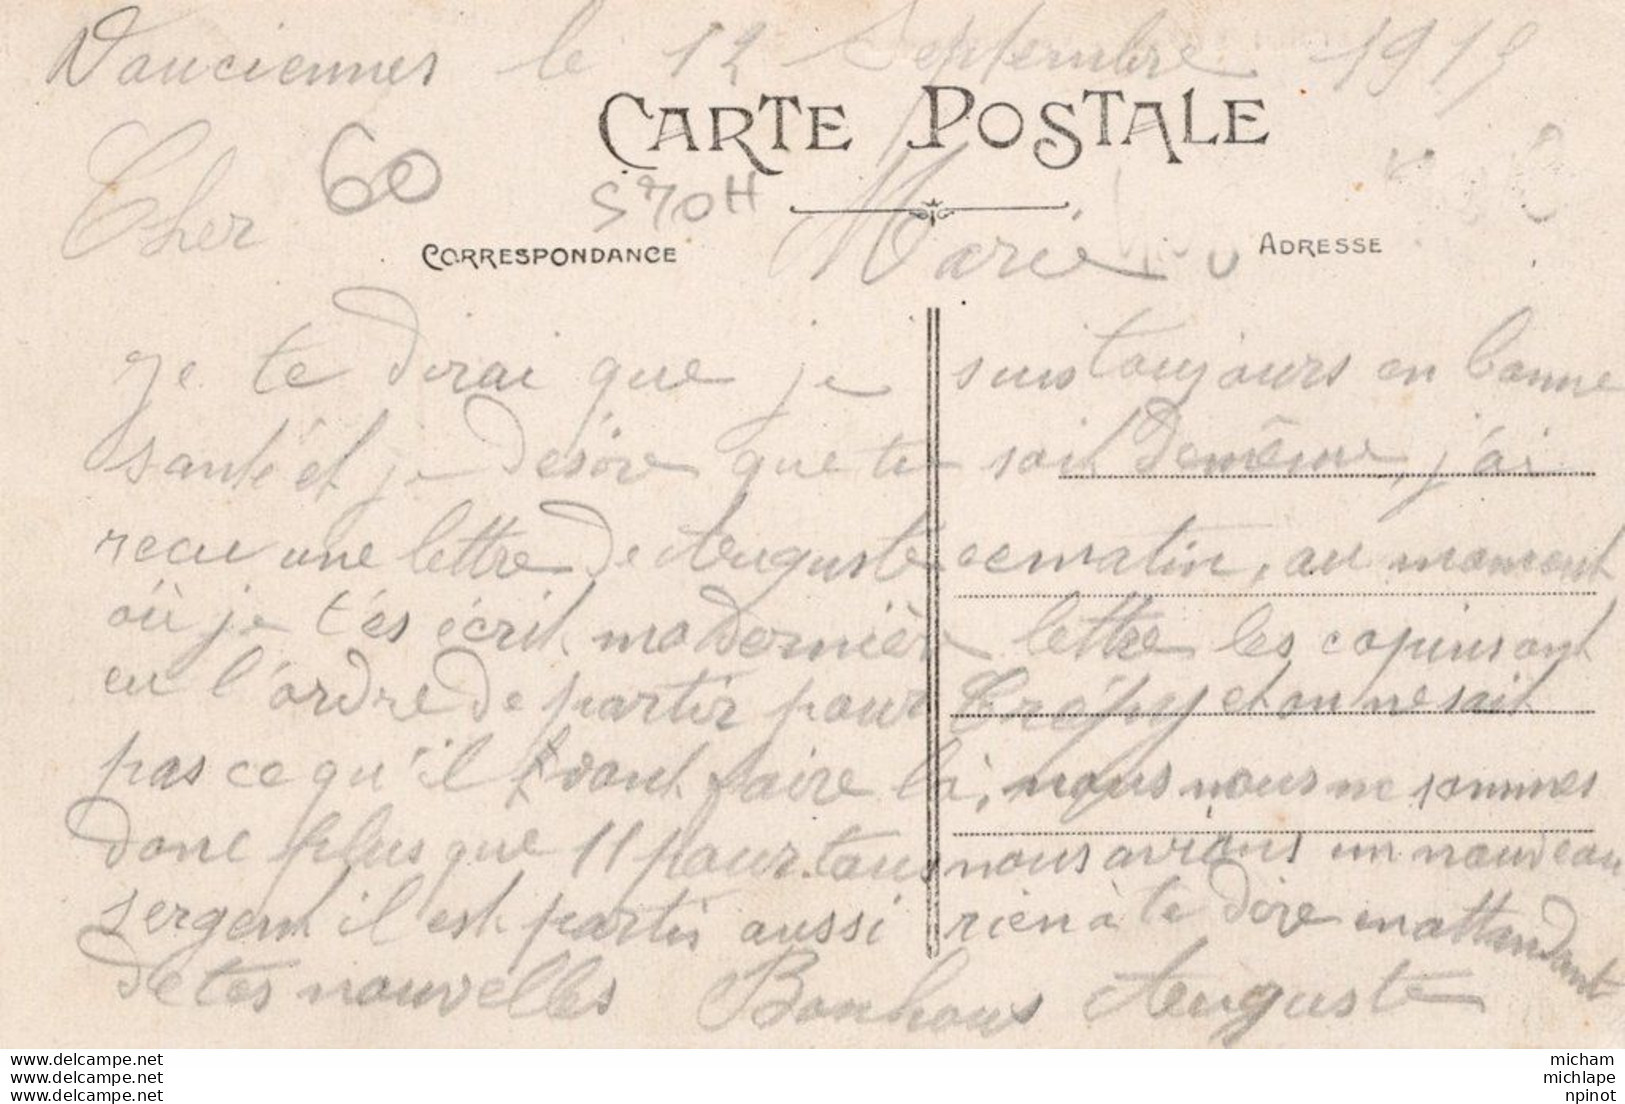 Vauciennes le 12 Septembre 1915
CARTE POSTALE
Cher Marie
60
S70H
CORRESPONDANCE
ADRESSE
Je te dirai que je suis toujours en bonne
santé et je désire que te soit de même, j'ai
recu une lettre de Auguste ce matin, au moment
où je t'es écrit ma dernière lettre les copins ont
eu l'ordre de partir pour Crépy et on ne sait
pas ce qu'il vont faire là, nous nous ne sommes
donc plus que 11 pourtans nous avions un nouveau
sergent il est partis aussi rien à te dire en attandant
de tes nouvelles Bonhous Auguste
www.delcampe.net
www.delcampe.net
www.delcampe.net
micham
michlape
npinot